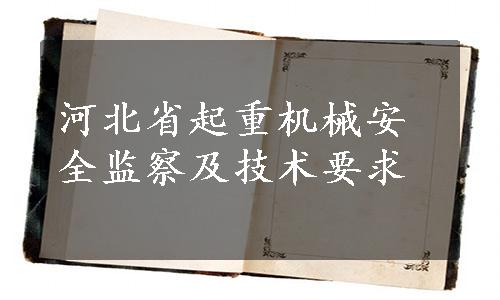 河北省起重机械安
全监察及技术要求